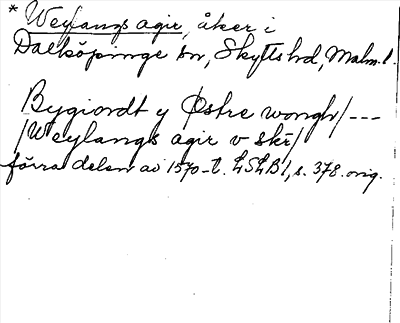 * Weylangs agir, åker i
Dalköpinge sn, Skytts hd, Malm. l.
Bygiordt y Østre wongh/---
/Weylangs agir v skr/
förra delen av 1570-t. LSLB1, s. 378. orig.